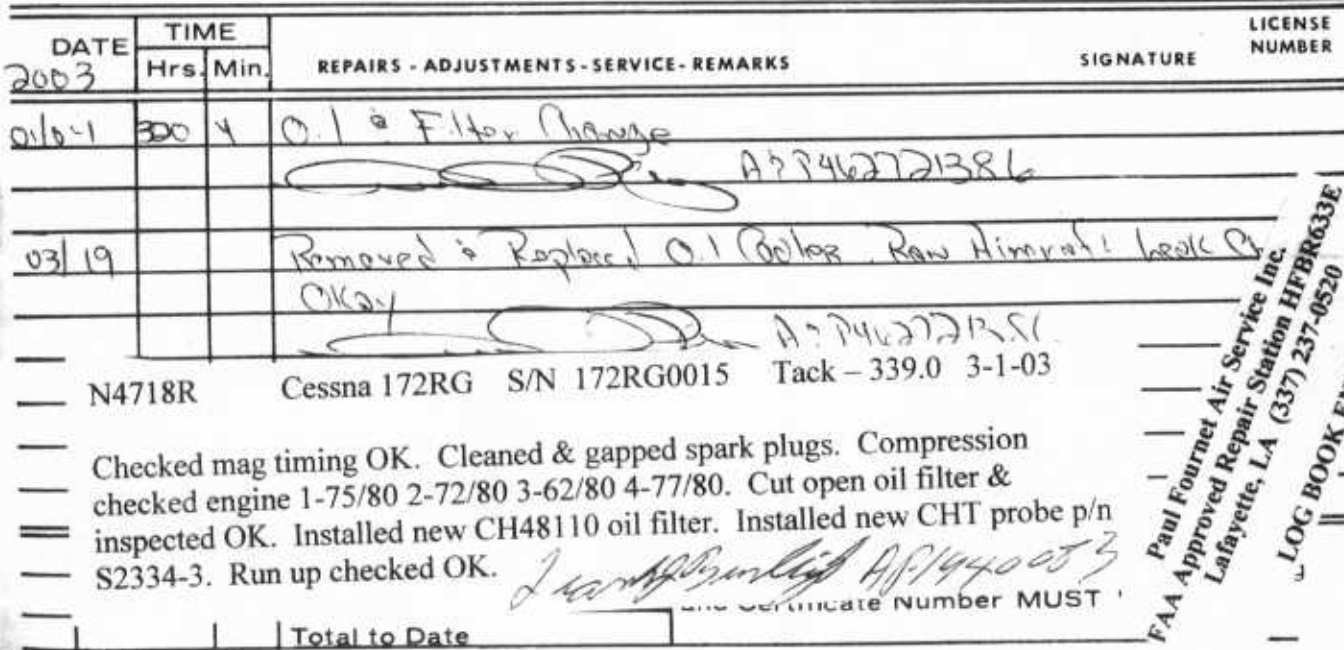 DATE
TIME
REPAIRS - ADJUSTMENTS - SERVICE - REMARKS
SIGNATURE
LICENSE
NUMBER
2003
Hrs. Min.
Oil & Filter Change
A&P462721386
03/19
Removed & Replaced Oil Cooler. Leak
Okay
N4718R Cessna 172RG S/N 172RG0015 Tack – 339.0 3-1-03
Checked mag timing OK. Cleaned & gapped spark plugs. Compression
checked engine 1-75/80 2-72/80 3-62/80 4-77/80. Cut open oil filter &
inspected OK. Installed new CH48110 oil filter. Installed new CHT probe p/n
S2334-3. Run up checked OK.
Certificate Number MUST
Total to Date
Paul Fournet Air Service Inc.
FAA Approved Repair Station HFBR633E
Lafayette, LA (337) 237-0520
LOG BOOK